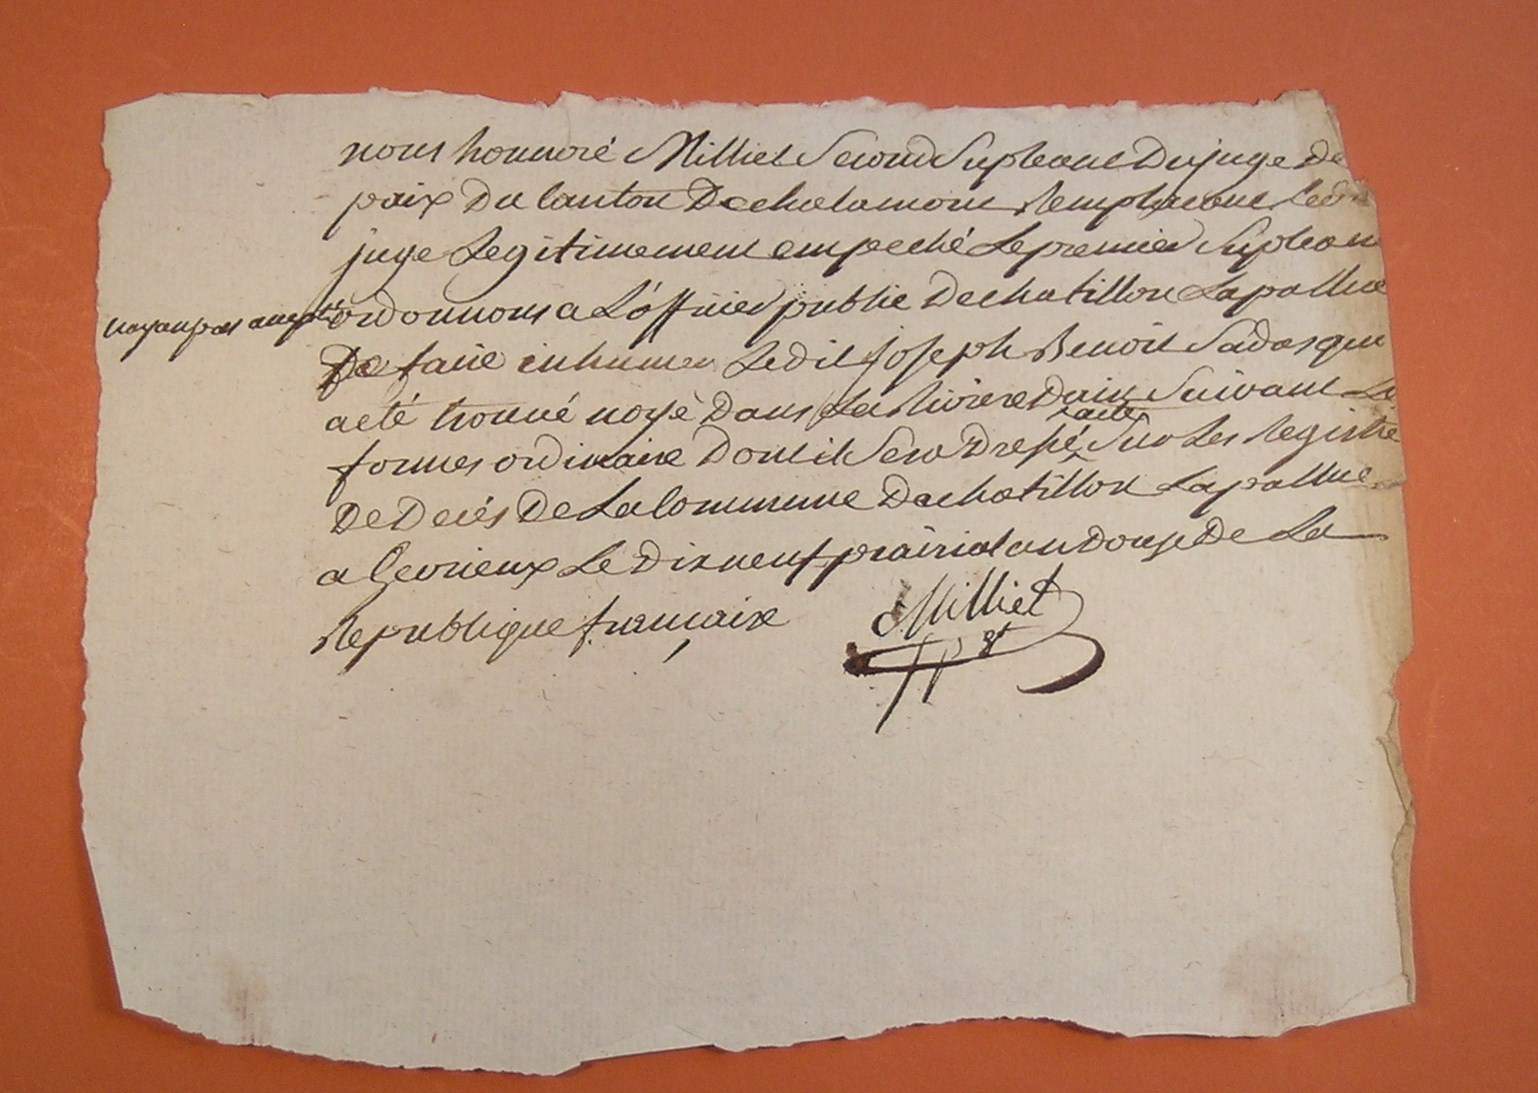 nous honnoré Milliet Second Supleant Dujuge de
paix Du Canton Dechalamont Remplacant Ledit
juge Legitimement empeché Lepremier Suplean
nayanpas accepté ordonnons a L'officier public Dechatillon Lapallue
De faire inhumer Ledit joseph Benoit qui
aeté trouvé noyé Dans La Riviere Dain Suivant Le
formes ordinaire Dontil Sera Dressé acte Sur Les Registre
De Deces De La Commune Dechatillon Lapallue
a Gevrieux Le Dixneuf prairial an Douze De La
Republique francaise
Milliet